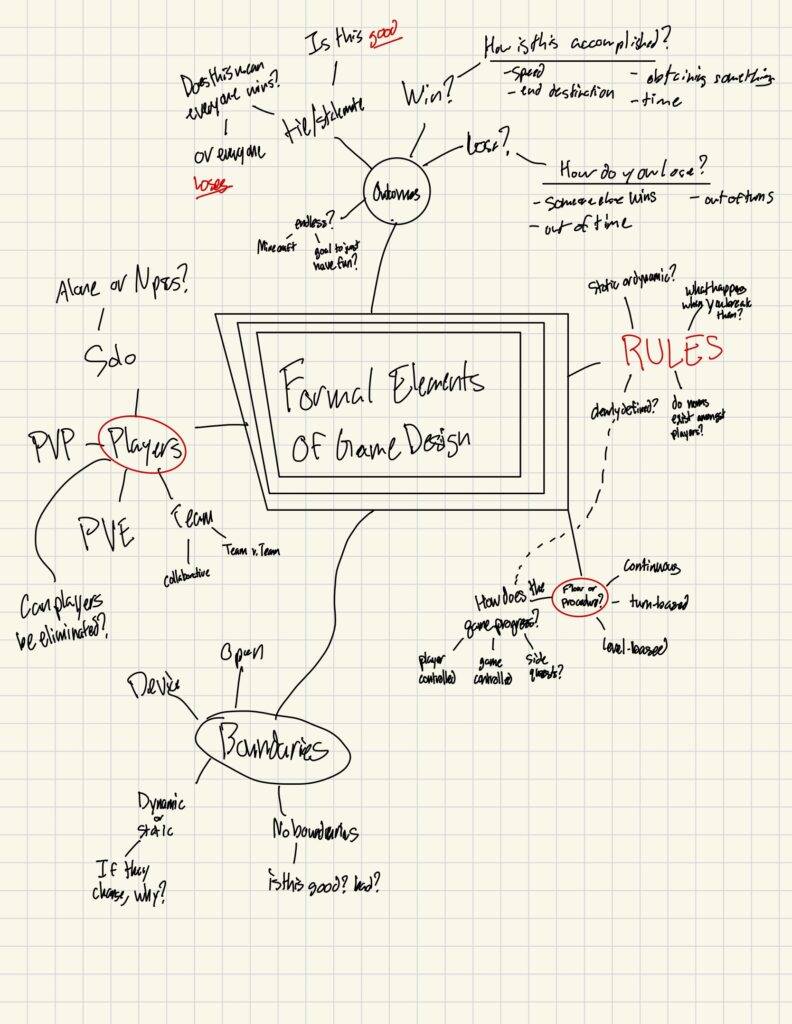 Is this good
How is this accomplished?
- speed
- obtaining something
- end destination
- time
Does this mean
everyone wins?
or everyone
loses
tie/stalemate
Win?
Lose?
How do you lose?
- someone else wins
- out of turns
- out of time
Outcomes
endless?
Minecraft
goal to just
have fun?
Alone or Npcs?
Solo
PVP
Players
PVE
Team
Team v. Team
collaborative
Can players
be eliminated?
Formal Elements
Of Game Design
static or dynamic?
what happens
when you break
them?
RULES
clearly defined?
do norms
exist amongst
players?
Flow or
procedure?
continuous
turn-based
level-based
How does the
game progress?
player
controlled
game
controlled
side
quests?
Open
Device
Boundaries
Dynamic
or
static
If they
change, why?
No boundaries
is this good? bad?